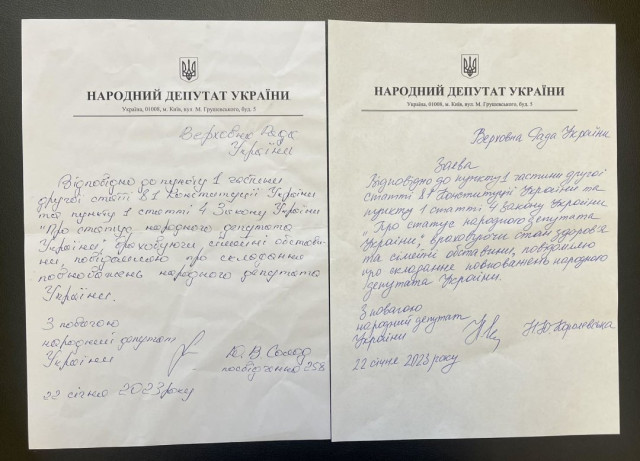 НАРОДНИЙ ДЕПУТАТ УКРАЇНИ
Україна, 01008, м. Київ, вул. М. Грушевського, буд. 5
Верховна Рада
України
Відповідно до пункту 1 частини
другої статті 81 Конституції України
та пункту 1 статті 4 Закону України
"Про статус народного депутата
України", враховуючи сімейні обстави-
ни, повідомляю про складання
повноважень народного депутата
України.
З повагою
народний депутат
України
Ю.В Солод
посвідчення 258
22 січня 2023 року
НАРОДНИЙ ДЕПУТАТ УКРАЇНИ
Україна, 01008, м. Київ, вул. М. Грушевського, буд. 5
Верховна Рада України
Заява
Відповідно до пункту 1 частини другої
статті 81 Конституції України та
пункту 1 статті 4 Закону України
"Про статус народного депутата
України", враховуючи стан здоров'я
та сімейні обставини, повідомляю
про складання повноважень народного
депутата України.
З повагою
народний депутат
України
Н.Ю Королевська
22 січня 2023 року